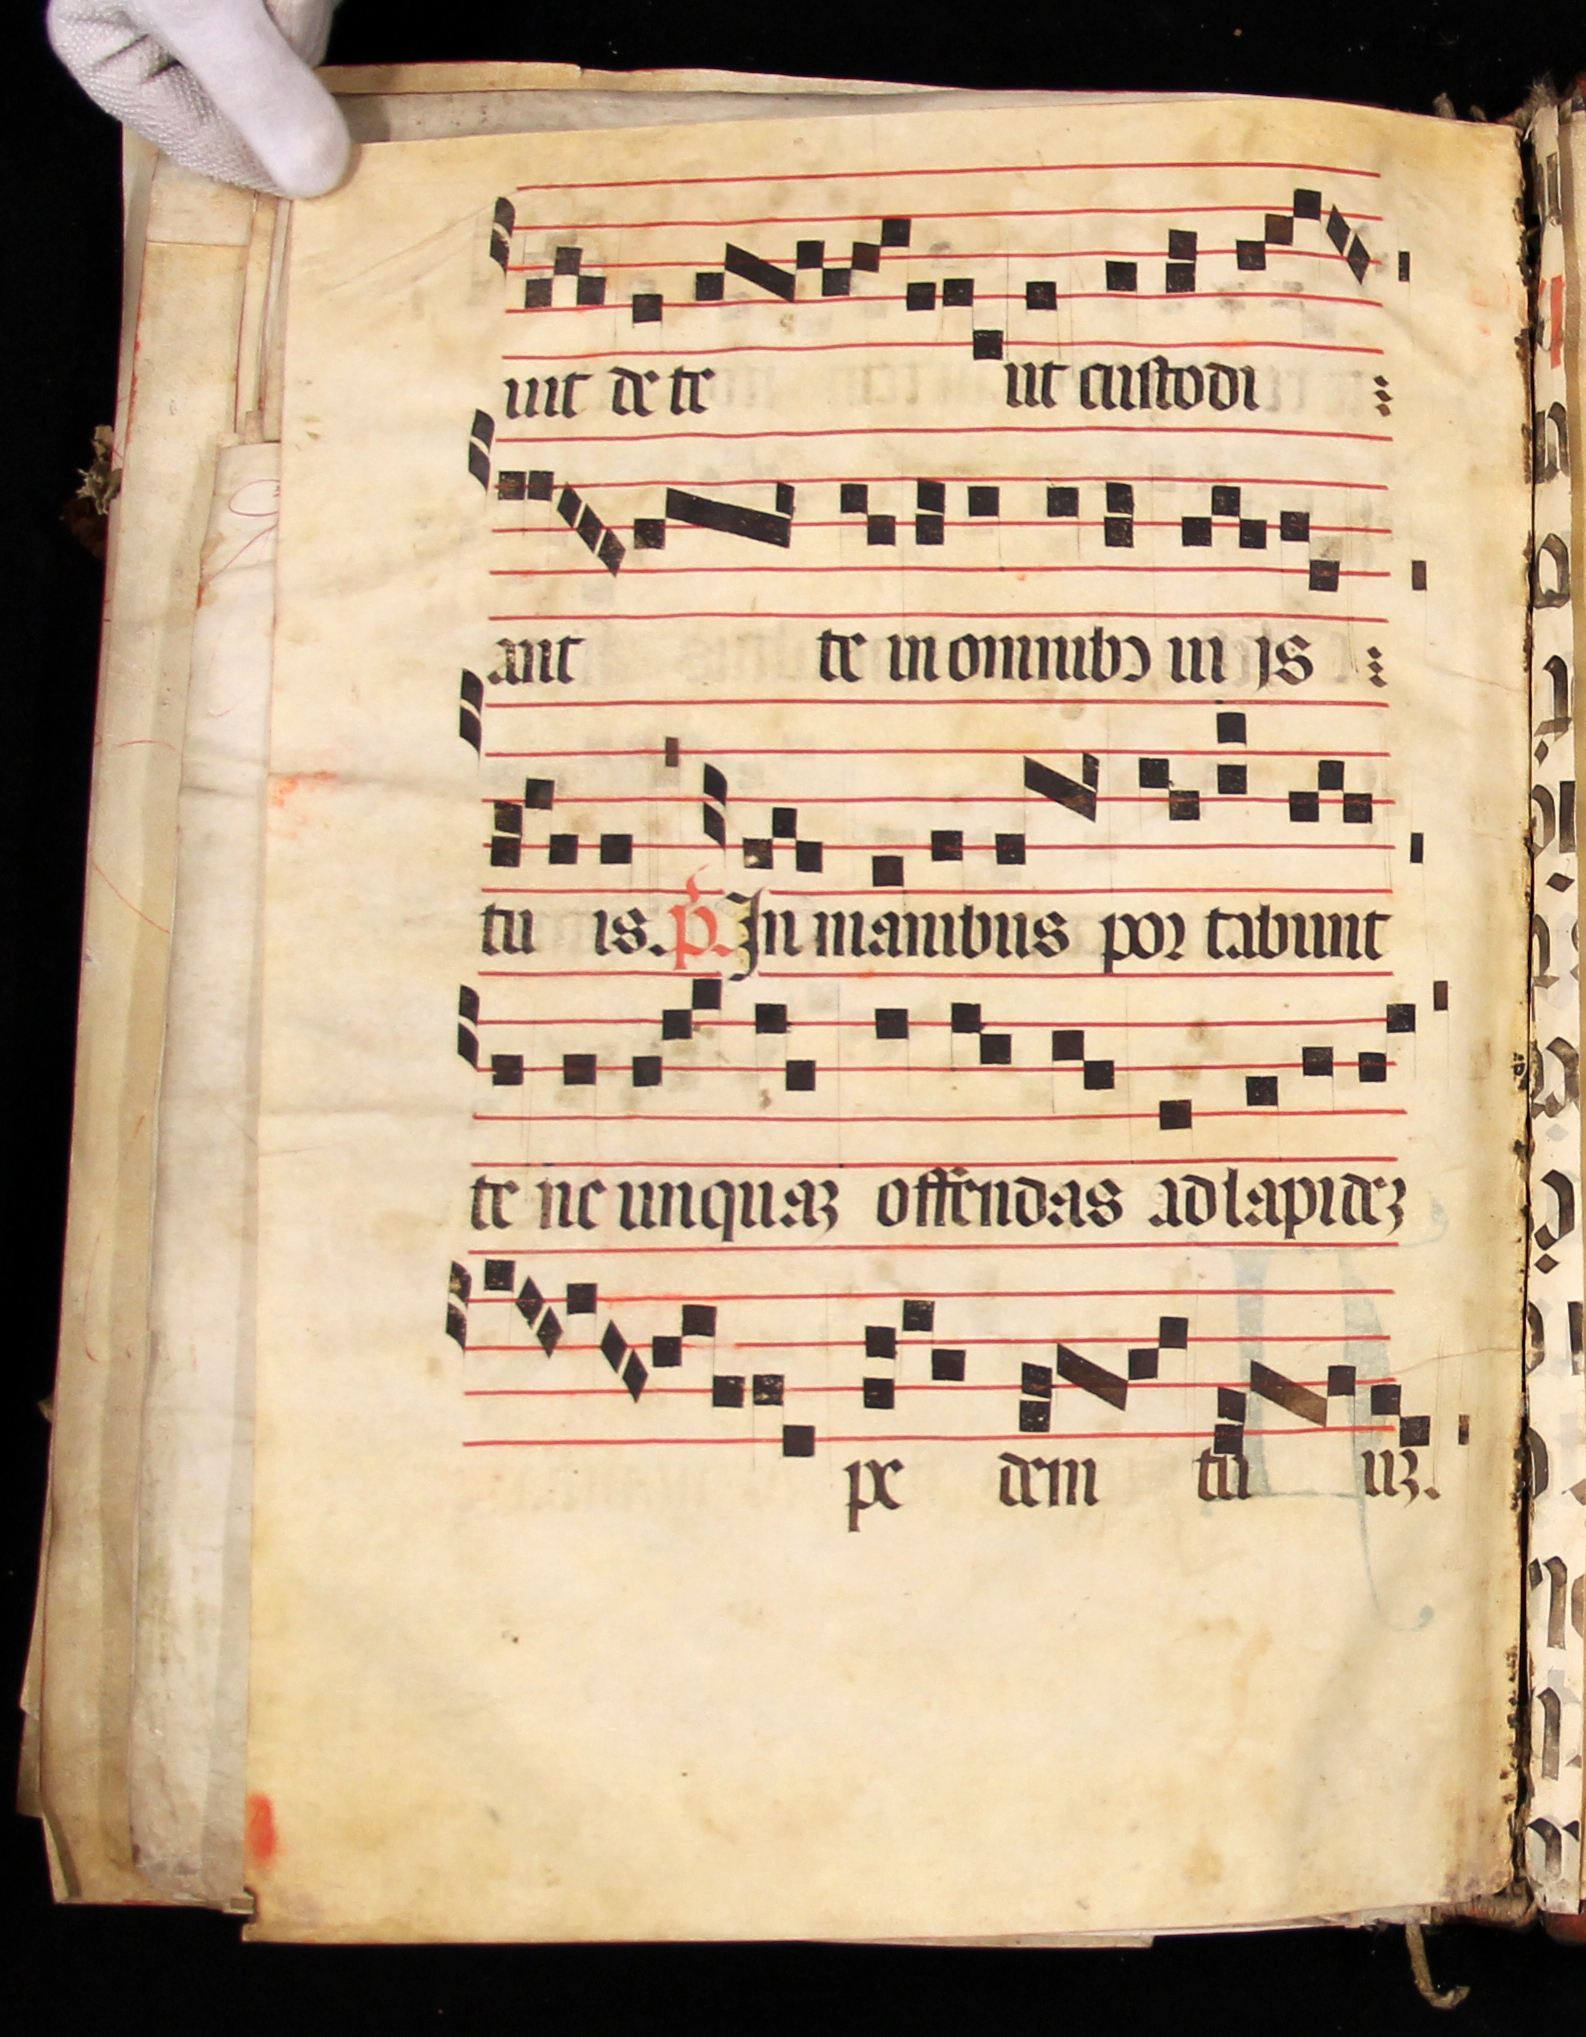 uit de te ut custodi
ant te in omnibꝰ ui is
tu is. p̄. In manibus por tabunt
te ne unquaꝫ offendas ad lapideꝫ
pe dem tu uꝫ.